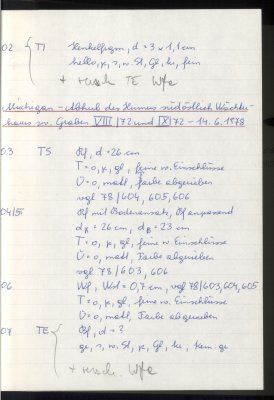 02 TI Henkelfrgm, d = 3 x 1,1 cm
hello, k, s, w. St, Gl, hr, fein
+ versch TE Wfe
Michigan - Abhub des Humus südöstlich Wächter-
haus sw. Graben VIII/72 und IX/72 - 14.6.1978
03 TS Rf, d = 26 cm
T = o, k, gl, feine w. Einschlüsse
Ü = o, matt, Farbe abgerieben
vgl 78/604, 605, 606
04/5 Rf mit Bodenansatz, Bf anpassend
dR = 26 cm, dB = 23 cm
T = o, k, gl, feine w. Einschlüsse
Ü = o, matt, Farbe abgerieben
vgl 78/603, 606
06 Wf, Wst = 0,7 cm, vgl 78/603, 604, 605
T = o, k, gl, feine w. Einschlüsse
Ü = o, matt, Farbe abgerieben
07 TE Rf, d = ?
gr, s, w. St, k, Gl, hr, Kern. gr
+ versch. Wfe